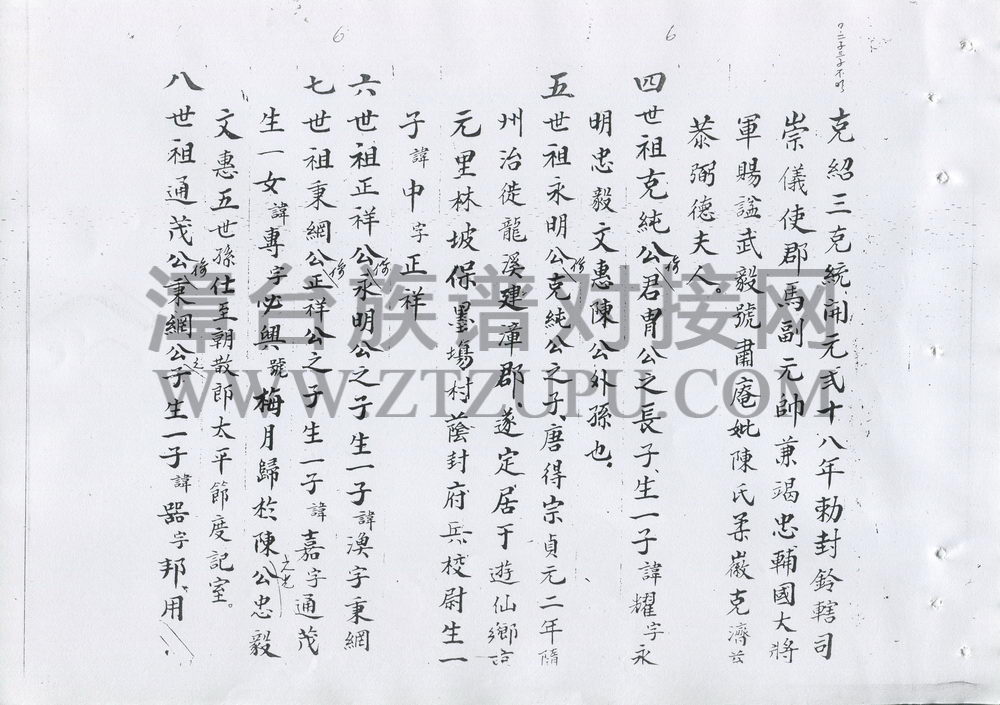 6
6
克紹三克統開元弍十八年勅封鈐轄司
崇儀使郡馬副元帥兼竭忠輔國大將
軍賜諡武毅號肅庵妣陳氏柔嶶克濟
恭弼德夫人
四世祖克純公君冑公之長子生一子諱耀字永
明忠毅文惠陳公外孫也
五世祖永明公克純公之子唐得宗貞元二年隨
州治徙龍溪建漳郡遂定居于遊仙鄉
元里林坡保墨場村蔭封府兵校尉生一
子諱中字正祥
六世祖正祥公永明公之子生一子諱渙字秉網
七世祖秉網公正祥公之子生一子諱嘉字通茂
生一女諱專字必興號梅月歸於陳公忠毅
文惠五世孫仕至朝散郎太平節度記室。
八世祖通茂公秉網公之子生一子諱器字邦用
漳台族谱对接网
WWW.ZTZUPU.COM